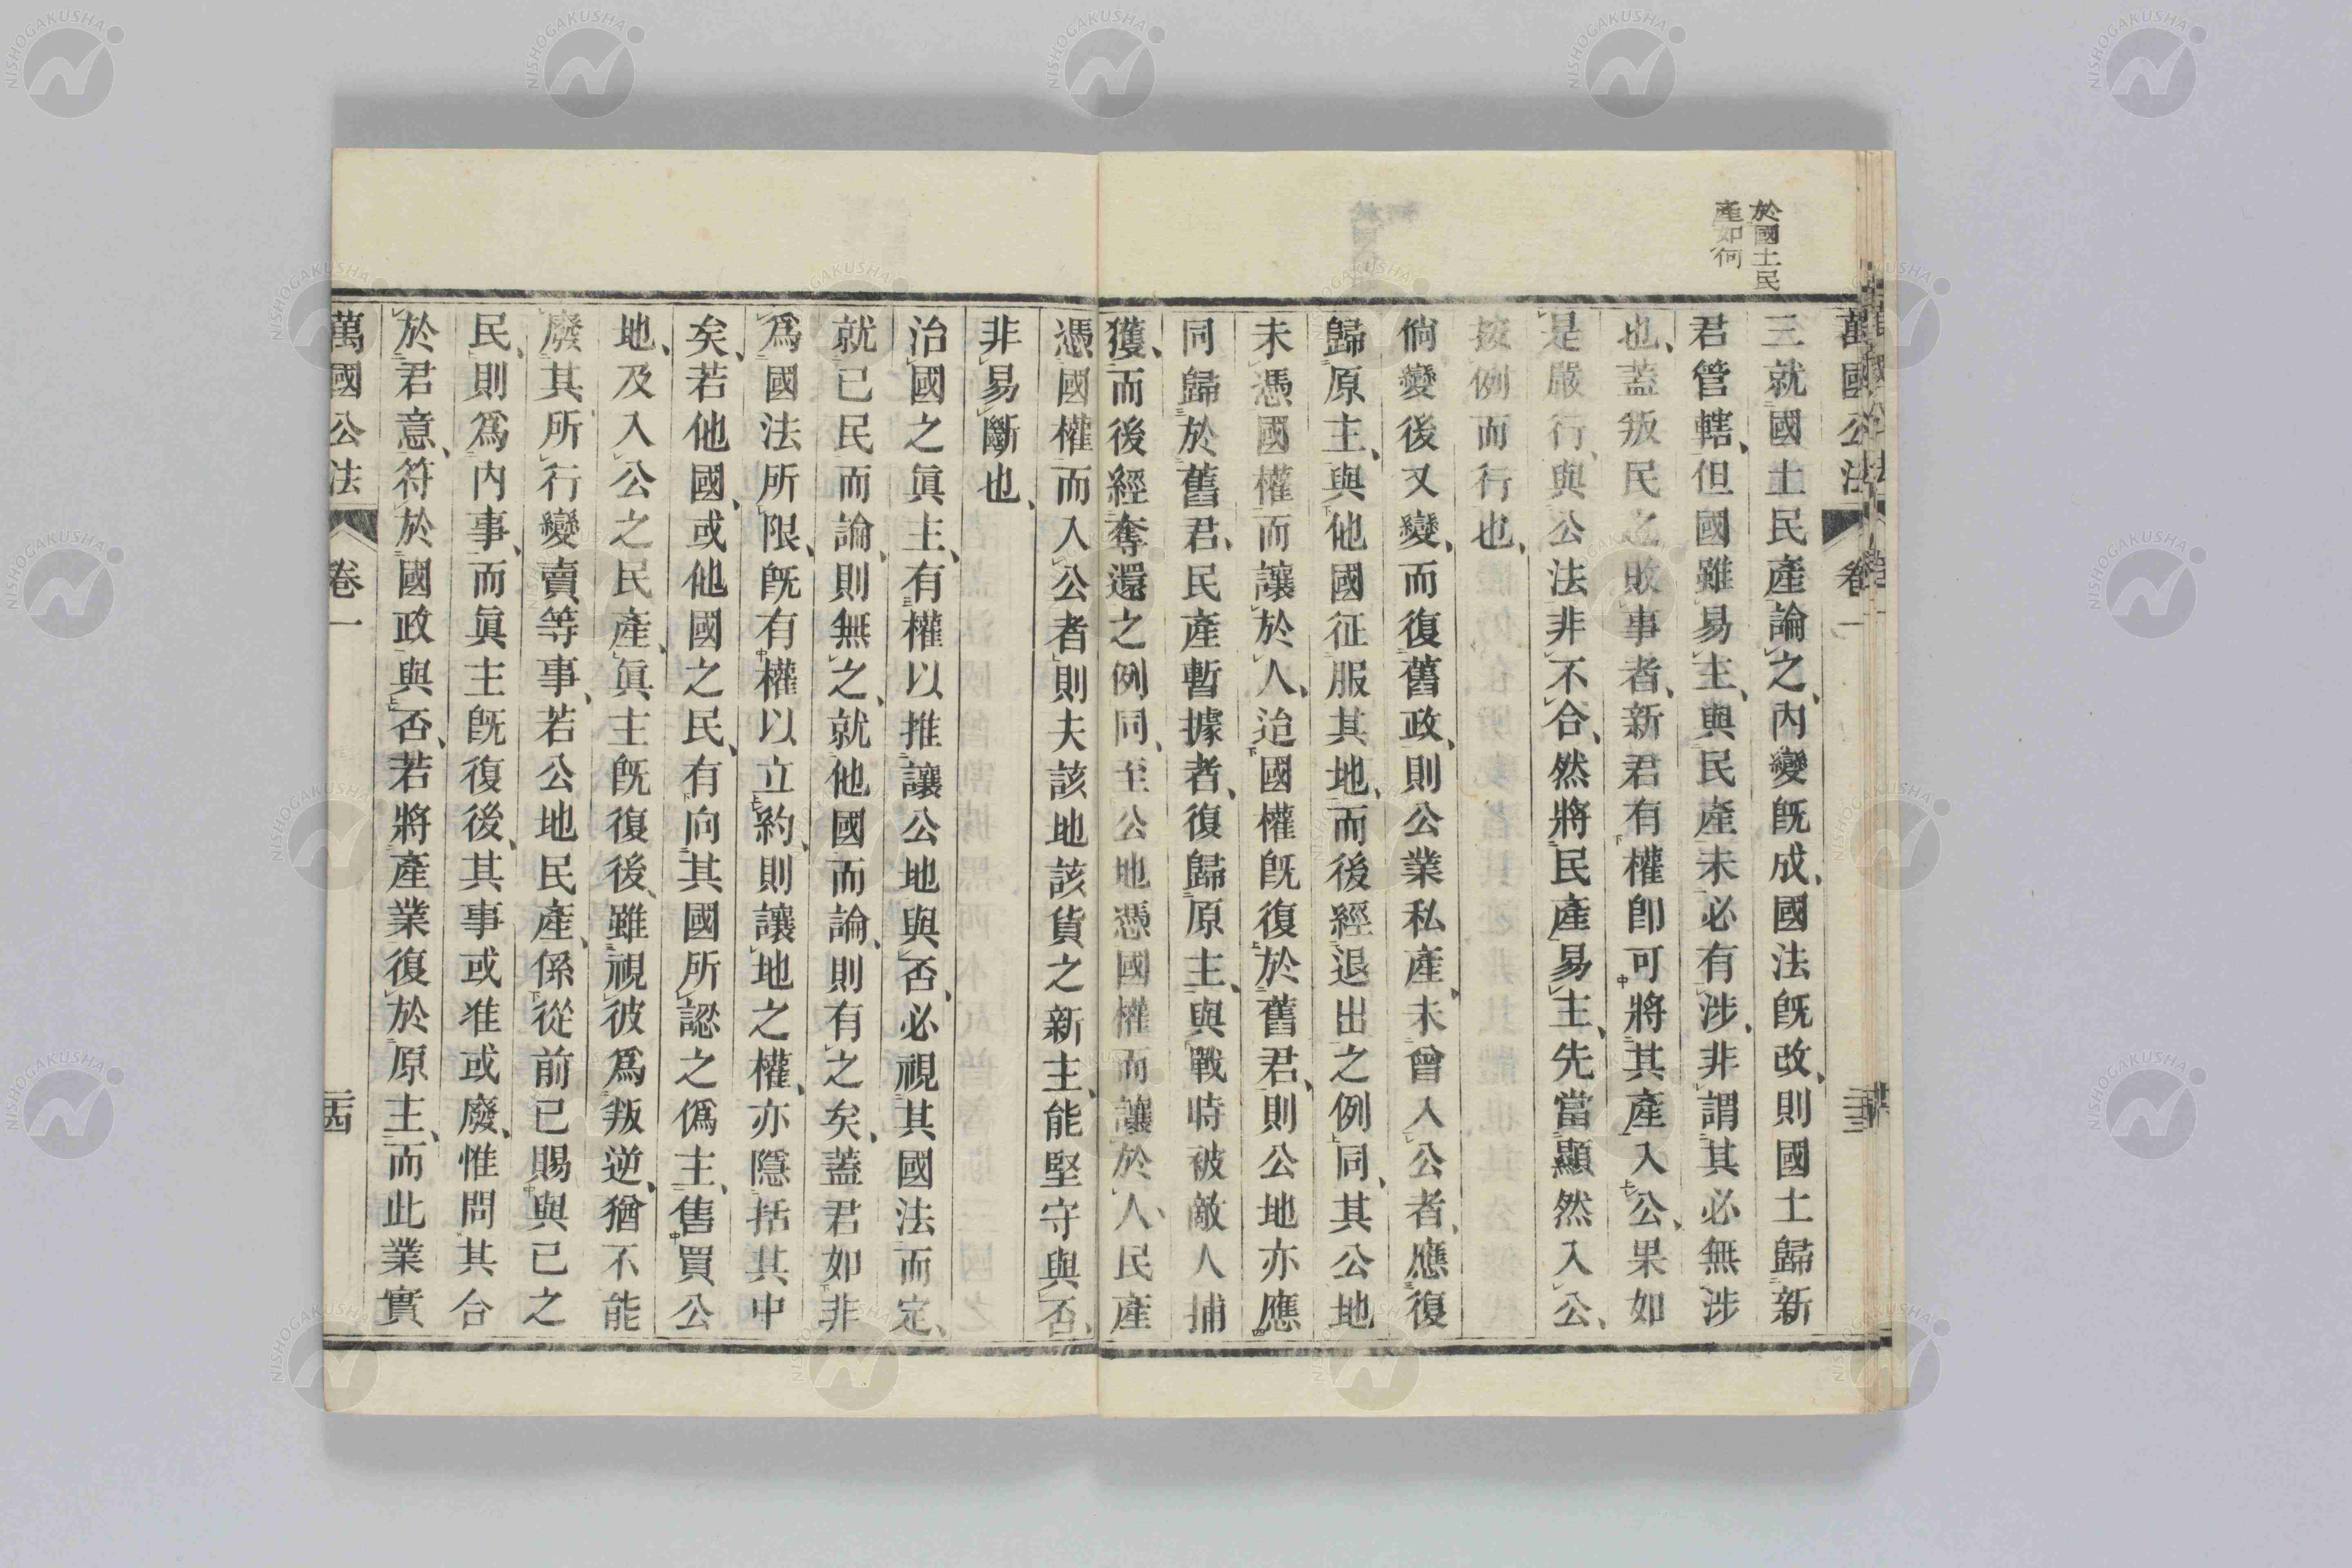 於國土民
産如何
萬國公法 卷一 二十三
三就國土民產論之、內變既成、國法既改、則國土歸新
君管轄、但國雖易主、與民產未必有涉、非謂其必無涉
也、蓋叛民之敗事者、新君有權卽可將其產入公、果如
是嚴行、與公法非不合、然將民產易主、先當顯然入公、
按例而行也、
倘變後又變、而復舊政、則公業私產、未曾入公者、應復
歸原主、與他國征服其地、而後經退出之例同、其公地
未憑國權而讓於人、迨國權既復於舊君、則公地亦應
同歸於舊君、民產暫據者、復歸原主、與戰時被敵人捕
獲、而後經奪還之例同、至公地憑國權而讓於人、民產
憑國權而入公者、則夫該地該貨之新主、能堅守與否、
非易斷也、
治國之眞主、有權以推讓公地與否、必視其國法而定、
就已民而論、則無之、就他國而論、則有之矣、蓋君如非
爲國法所限、既有權以立約、則讓地之權、亦隱括其中
矣、若他國、或他國之民、有向其國所認之僞主、售買公
地、及入公之民產、眞主既復後、雖視彼爲叛逆、猶不能
廢其所行變賣等事、若公地民產、係從前已賜與已之
民、則爲內事、而眞主既復後、其事或准或廢、惟問其合
於君意、符於國政與否、若將產業復於原主、而此業實
萬國公法 卷一 二十四
NISHOGAKUSHA